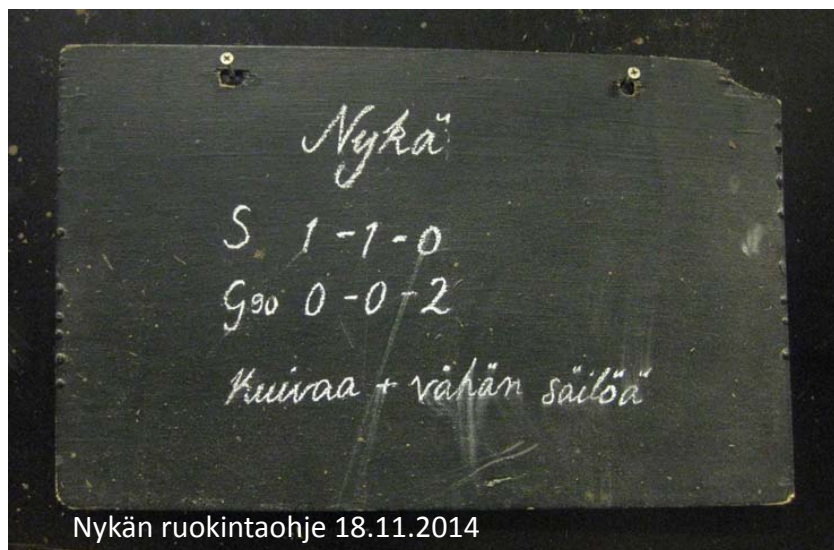 Nykä
S 1-1-0
G90 0-0-2
Kuivaa + vähän säilöä
Nykän ruokintaohje 18.11.2014